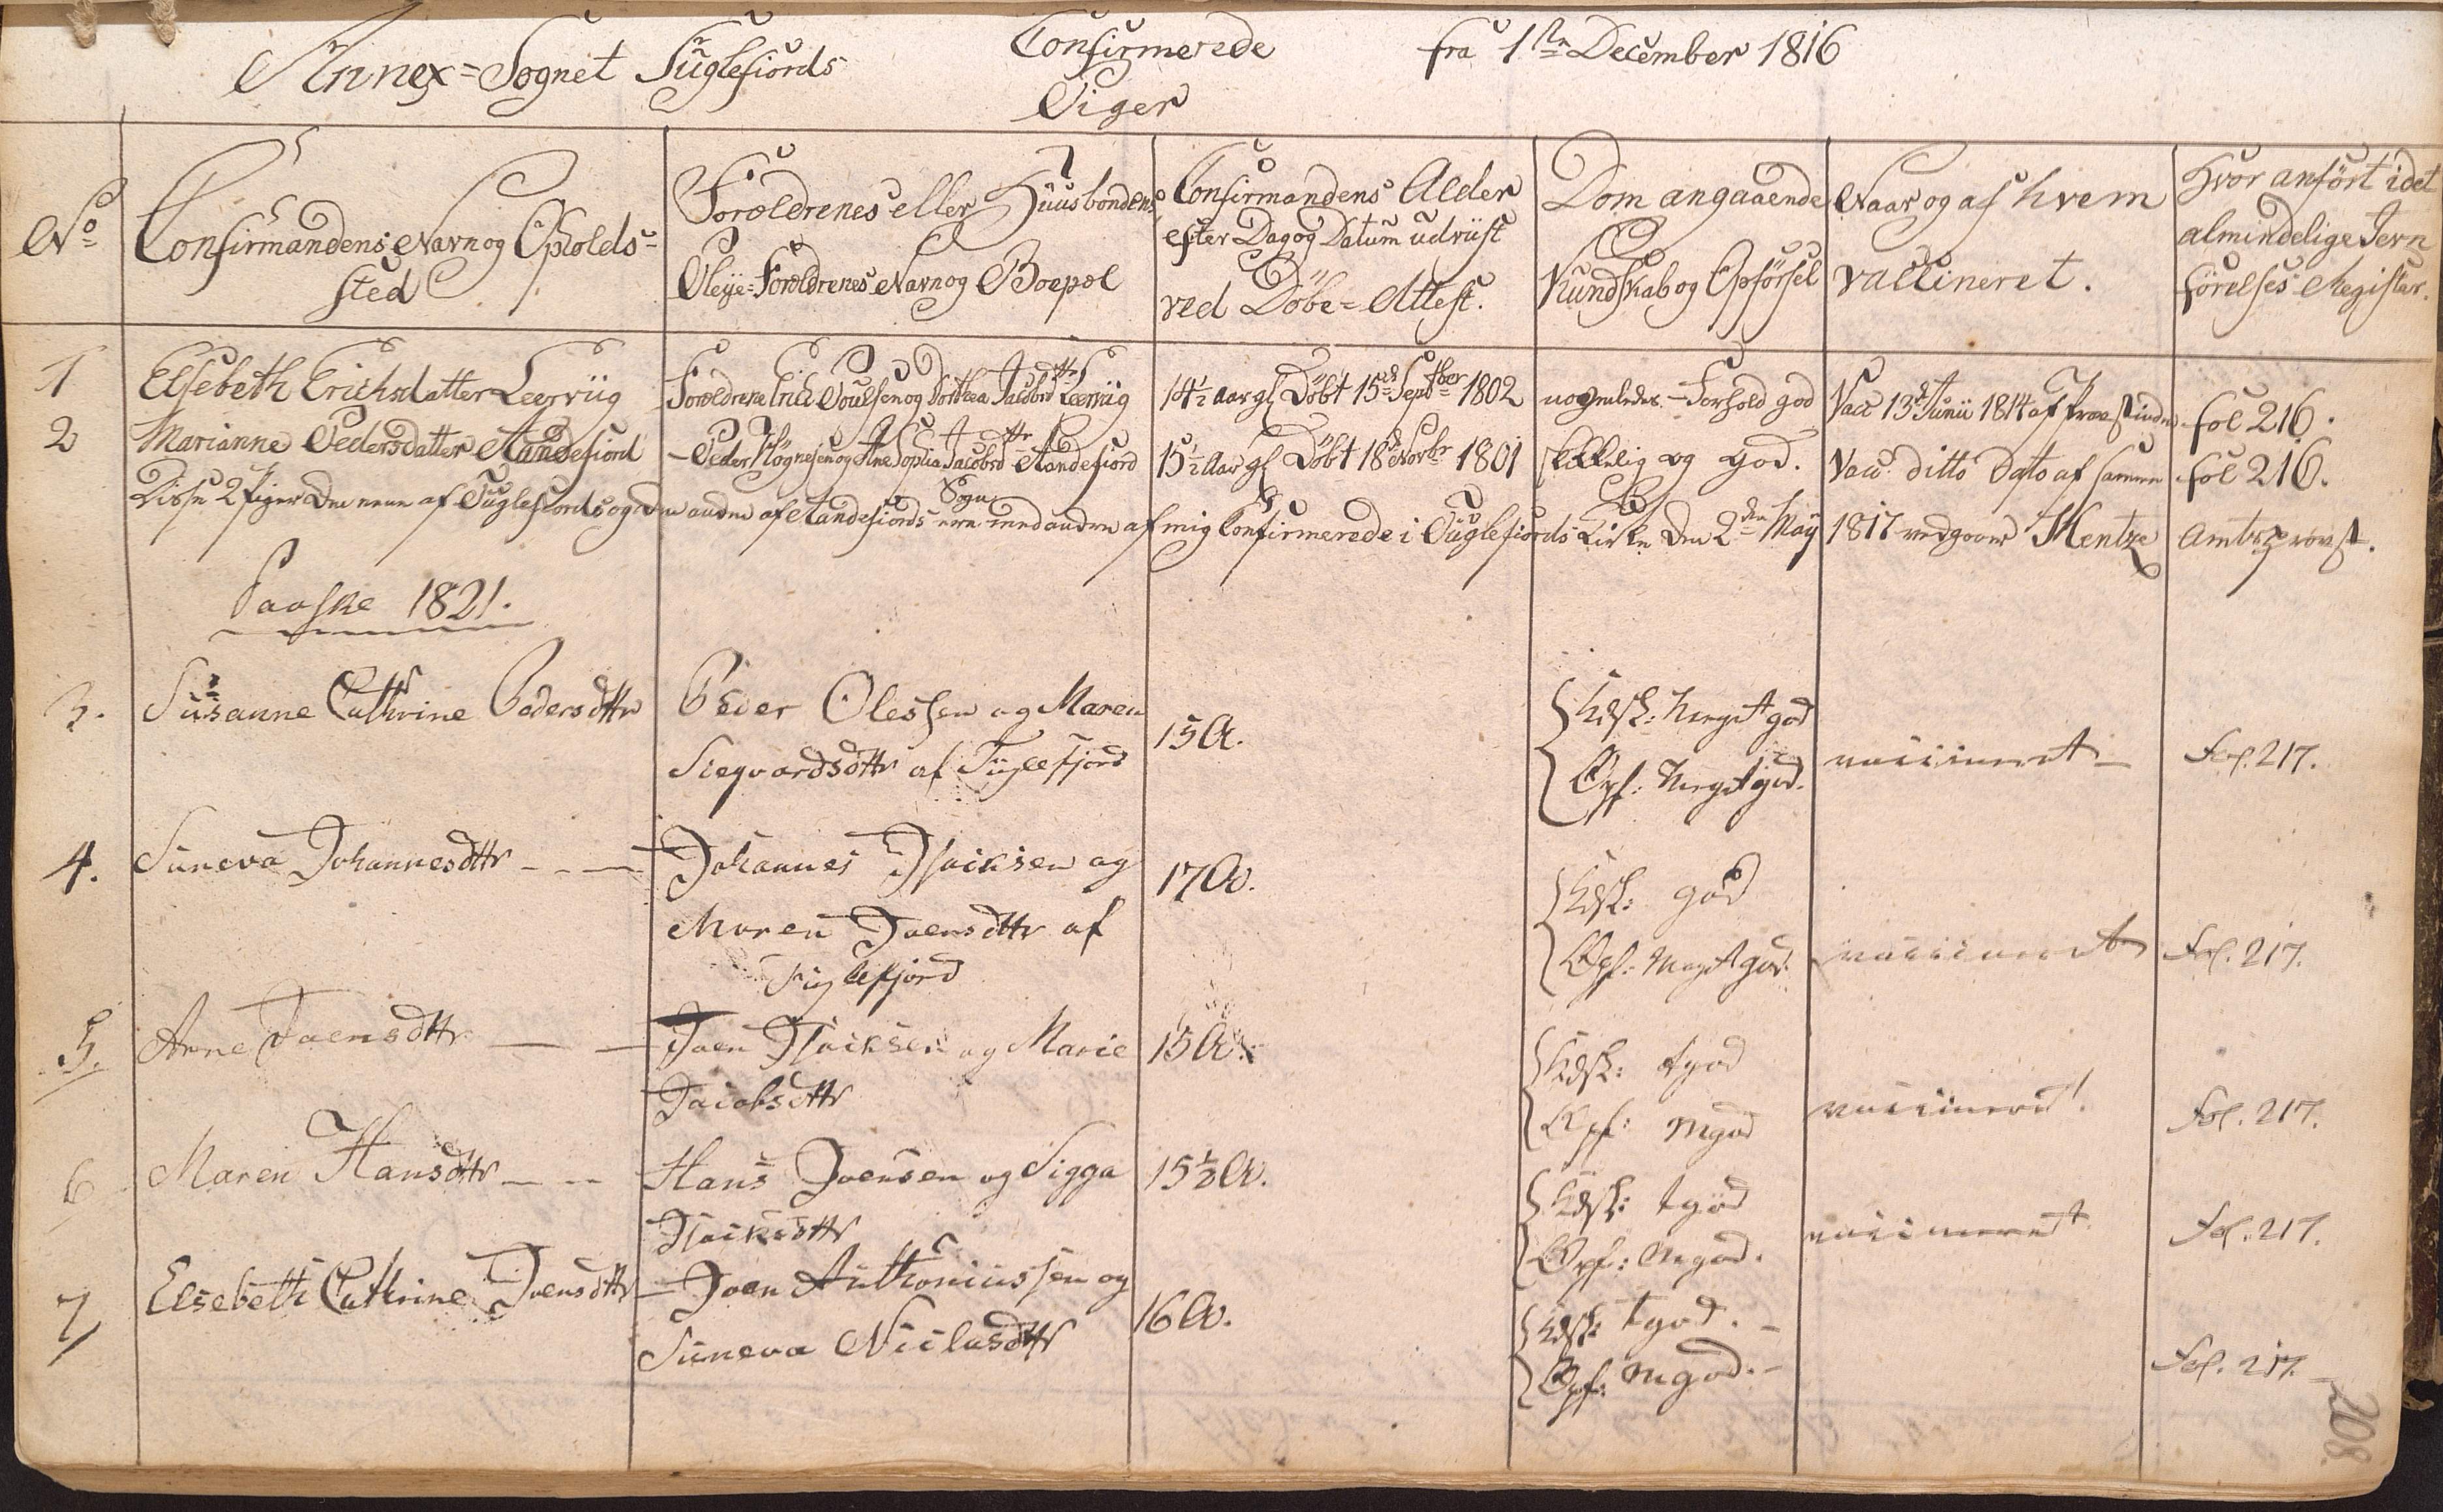 Annex=Sognet Fuglefiords Confirmerede fra 1ste December 1816
Piger
No
Confirmandens Navn og Opholds=
sted
Forældrenes eller Huusbondens
Pleye=Forældrenes Navn og Boepæl
Confirmandens Alder
efter Dag og Datum udviist
ved Döbe=Attest.
Dom angaaende
Kundskab og Opförsel
Naar og af hvem
vaccineret.
Hvor anfört i det
almindelige Jevn
förelses Register.
1 Elsebeth Erichsdatter Leervüg Forældrene Erich Poulsen og Dorthea Jacobsdttr Leervüg 14½ aar gl Döbt 15d Septbr 1802 nogenledes - Forhold god Vacc 13d Junii 1814 af Provstinden fol 216.
2 Marianne Pedersdatter Andefiord - Peder Høgnesen og Ane Sophia Jacobsdttr Andefiord 15½ Aar gl Döbt 18d Novbr 1801 skikkelig og god. Vacc ditto Dato af samme fol 216.
Disse 2 Piger Den eene af Fuglefiords og den anden af Andefiords Sogn ere med anden af mig Confirmerede i Fuglefiords Kirke Den 2den May 1817 Hentze Amtsprovst.
Paaske 1821.
3. Susanne Cathrine Pedersdttr Peder Olessen og Maren
Siegvardsdttr af Fuglefjord
15 A.
Kdsk: Meget god
Opf: Meget god.
vaccineret - Fol. 217.
4. Suneva Johannesdttr - - - Johannes Isacksen og
Maren Joensdttr af
Fuglefjord
17 A.
Kdsk: god
Opf: Meget god.
vaccineret Fol. 217.
5. Anne Joensdttr - - Joen Isacksen og Marie
Jacobsdttr
15 A.
Kdsk: tgod
Opf: Mgod
vaccineret. Fol. 217.
6 Maren Hansdttr - - Hans Joensen og Sigga
Isacksdttr
15½ A.
Kdsk: tgod
Opf: Mgod.
vaccineret Fol. 217.
7 Elsebeth Cathrine Joensdttr - Joen Anthoniussen og
Suneva Niclasdttr
16 A.
Kdsk: tgod. -
Opf: Mgod. -
Fol. 217. -
208.